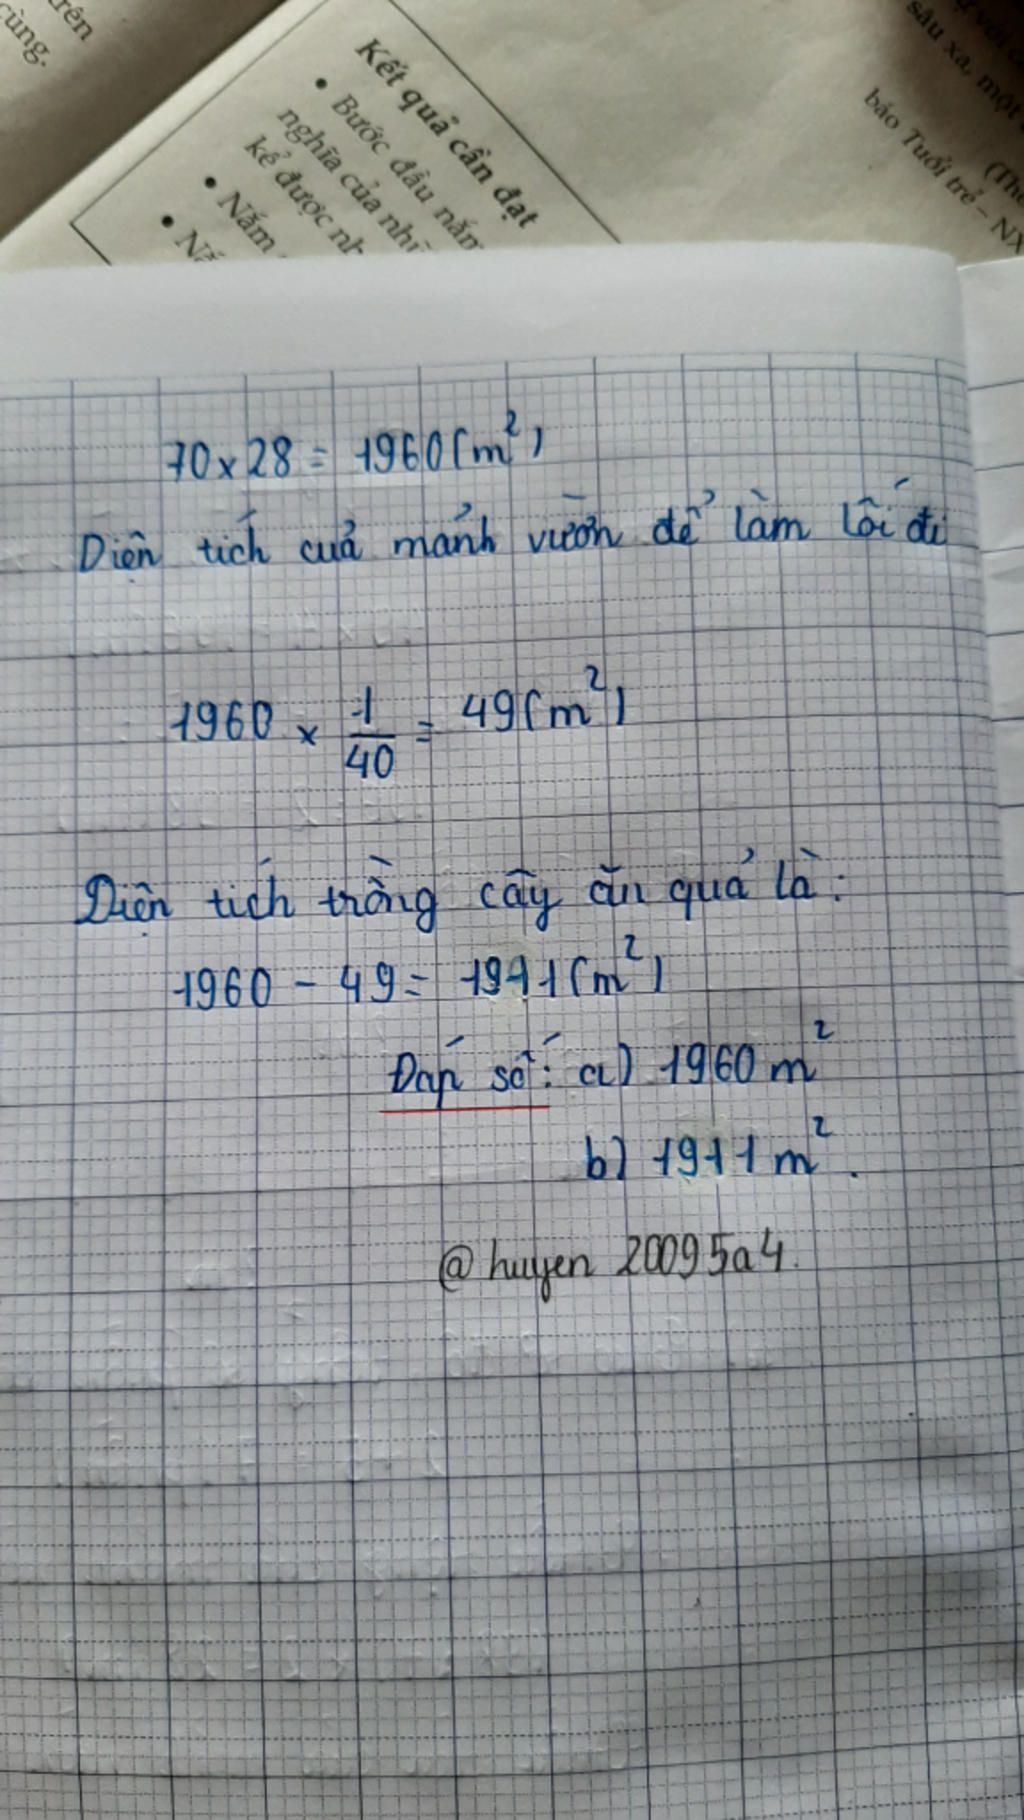 rên
cùng.
Kết quả cần đạt
• Bước đầu nắm
nghĩa của nhĩ
kể được nh
• Nắm
• Nắ
sâu xa, một
(The
báo Tuổi trẻ – NX
70 x 28 = 1960 (m²)
Diện tích cuả mảnh vườn để làm lối đi
1960 x 1/40 = 49 (m²)
Diện tích trồng cây ăn quả là:
1960 - 49 = 1911 (m²)
Đáp số: a) 1960 m²
b) 1911 m².
@ huyen 20095a4.